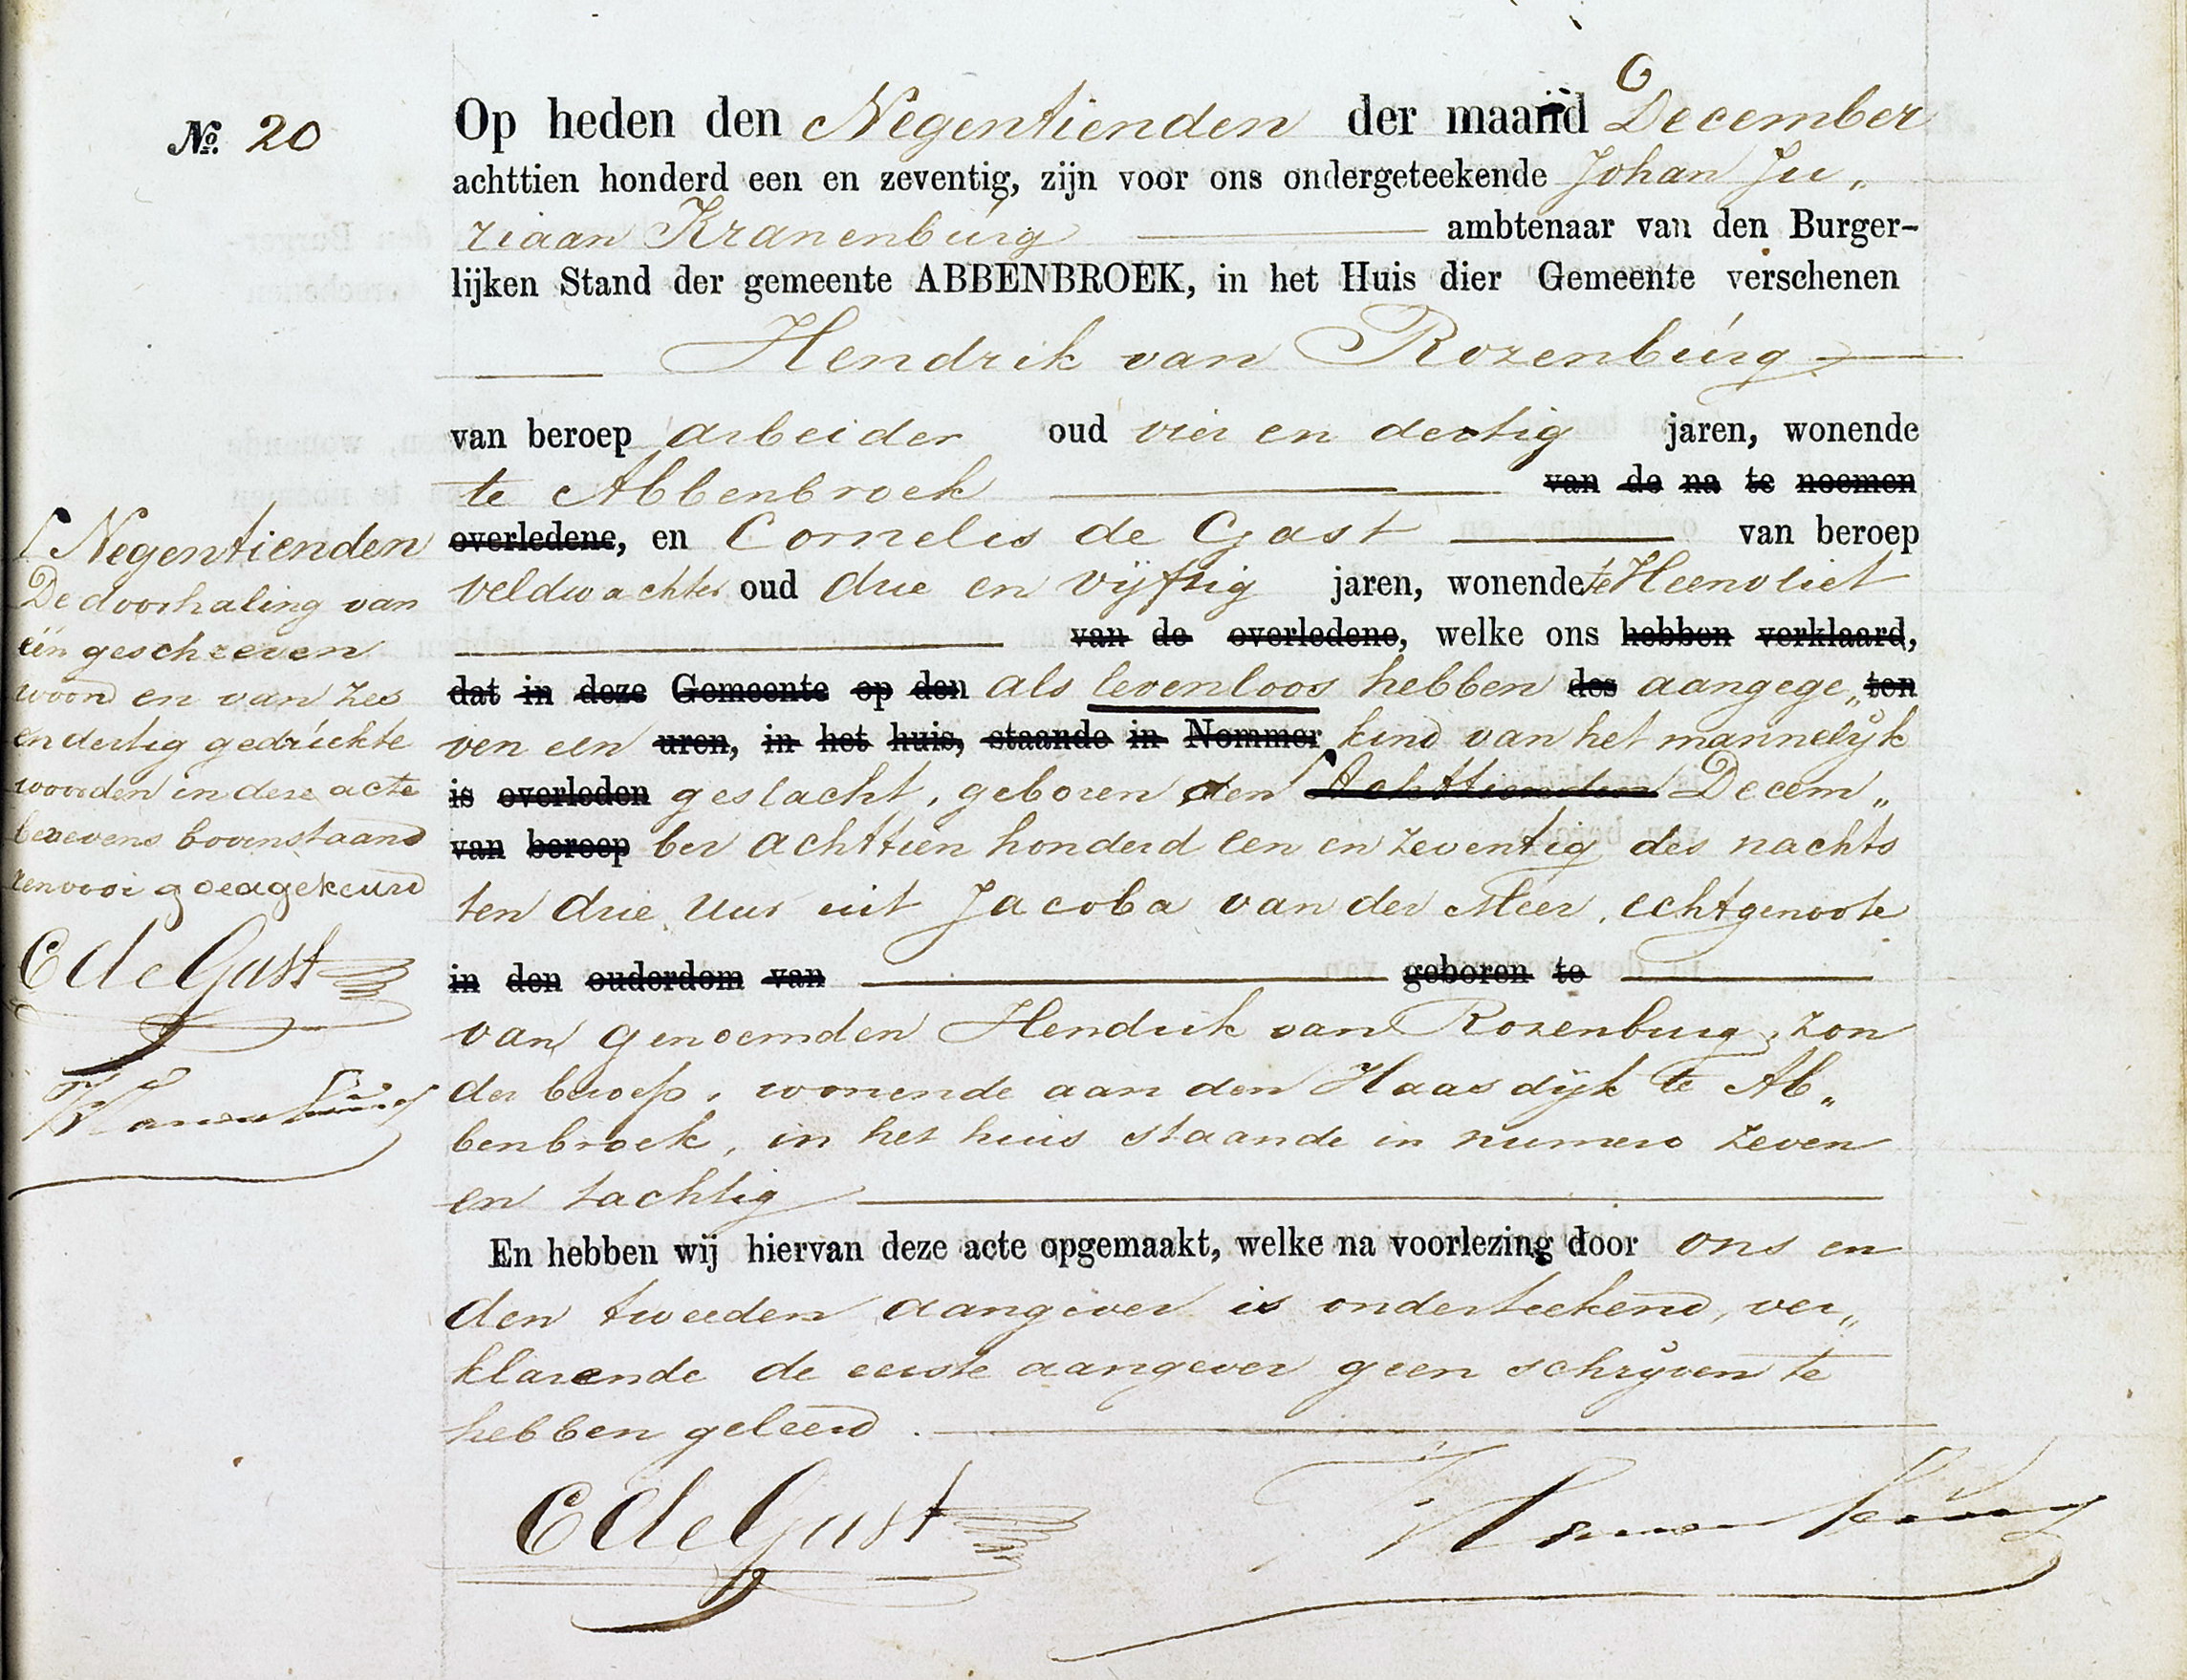 №. 20
Op heden den Negentienden der maand December
achttien honderd een en zeventig, zijn voor ons ondergeteekende Johan Ju„
riaan Kranenburg ambtenaar van den Burger-
lijken Stand der gemeente ABBENBROEK, in het Huis dier Gemeente verschenen
Hendrik van Rozenburg
van beroep arbeider oud vier en dertig jaren, wonende
te Abbenbroek van de na te noemen
overledene, en Cornelis de Gast van beroep
veldwachter oud drie en vijftig jaren, wonende te Heenvliet
van de overledene, welke ons hebben verklaard,
dat in deze Gemeente op den als levenloos hebben des aangege„ ten
ven een uren, in het huis, staande in Nommer kind van het mannelijk
is overleden geslacht, geboren den Achttienden Decem„
van beroep ber achttien honderd een en zeventig des nachts
ten drie uur uit Jacoba van der Meer, echtgenoote
in den ouderdom van geboren te
van genoemden Hendrik van Rozenburg, zon
der beroep, wonende aan den Haasdijk te Ab„
benbroek, in het huis staande in numero zeven
en tachtig
En hebben wij hiervan deze acte opgemaakt, welke na voorlezing door ons en
den tweeden aangever is onderteekend, ver„
klarende de eerste aangever geen schrijven te
hebben geleerd.
C de Gast Kranenburg
Negentienden
De doorhaling van
één geschreven
woord en van zes
en dertig gedrukte
woorden in deze acte
benevens bovenstaand
renvooi goedgekeurd
C de Gast
Kranenburg